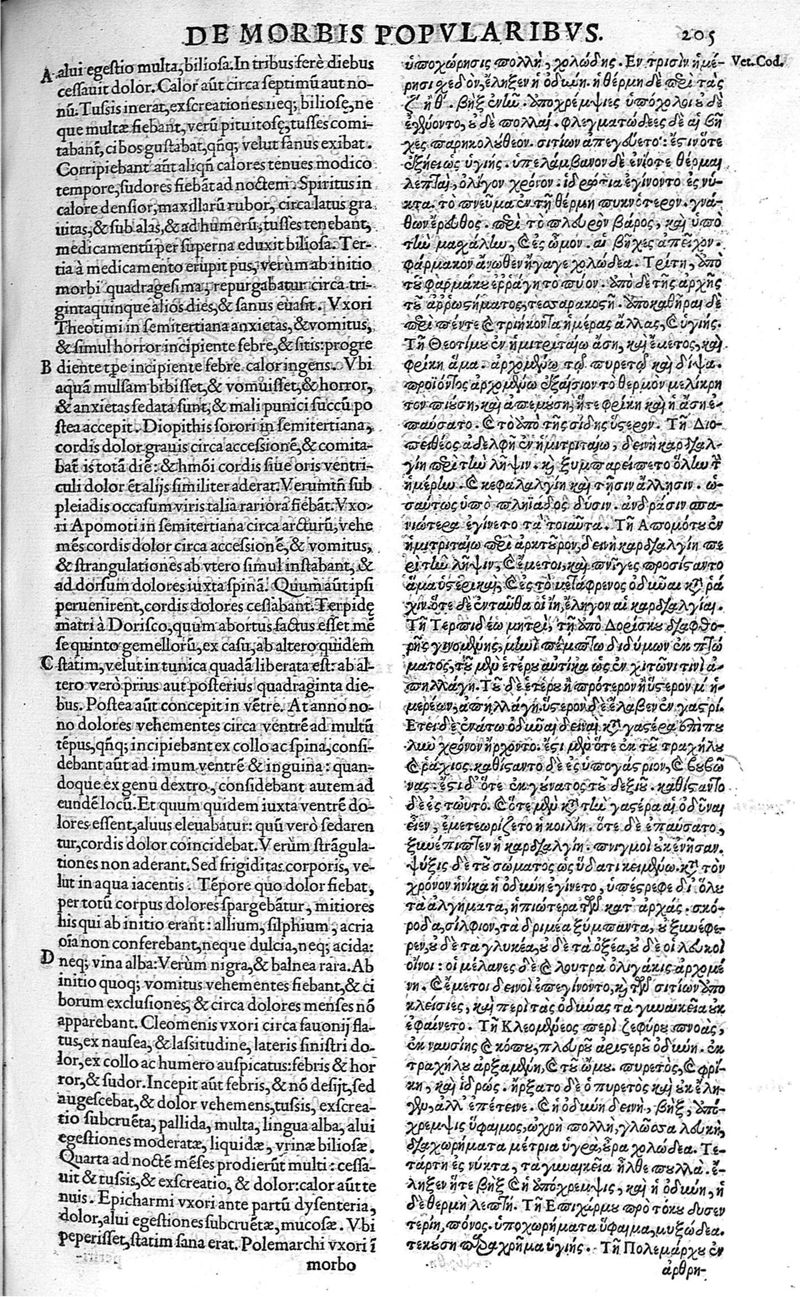 DE MORBIS POPVLARIBVS. 205
A alui egestio multa, biliosa. In tribus ferè diebus
cessauit dolor. Calor aūt circa septimū aut no-
nū. Tussis inerat, exscreationes neq; biliosę, ne
que multæ fiebant, verū pituitosę, tusses comi-
tabant, cibos gustabat, qñq; velut sanus exibat.
Corripiebant aūt aliqñ calores tenues modico
tempore, sudores fiebāt ad noctem. Spiritus in
calore densior, maxillarū rubor, circa latus gra
uitas, & sub alas, & ad humerū, tusses tenebant,
medicamentū per superna eduxit biliosa. Ter-
tia à medicamento erupit pus, verùm ab initio
morbi quadragesima, repurgabatur circa tri-
gintaquinque alios dies, & sanus euasit. Vxori
Theotimi in semitertiana anxietas, & vomitus,
& simul horror incipiente febre, & sitis: progre
B diente tp̄e incipiente febre calor ingens. Vbi
aquā mulsam bibisset, & vomuisset, & horror,
& anxietas sedata sunt, & mali punici succū po
stea accepit. Diopithis sorori in semitertiana,
cordis dolor grauis circa accessionē, & comita-
bat̄ is totā diē: & hmōi cordis siue oris ventri-
culi dolor et alijs similiter aderat. Verumtn̄ sub
pleiadis occasum viris talia rariora fiebāt. Vxo-
ri Apomoti in semitertiana circa arcturū, vehe
mēs cordis dolor circa accessionē, & vomitus,
& strangulationes ab vtero simul instabant, &
ad dorsum dolores iuxta spinā. Quium aūt ipsi
peruenirent, cordis dolores cessabant. Terpidę
matri à Dorisco, quum abortus factus esset mē
se quinto gemellorū, ex casu, ab altero quidem
C statim, velut in tunica quadā liberata est: ab al-
tero verò prius aut posterius quadraginta die-
bus. Postea aūt concepit in vētre. At anno no-
no dolores vehementes circa ventrē ad multū
tēpus, qñq; incipiebant ex collo ac spina, consi-
debant aūt ad imum ventrē & inguina: quan-
doque ex genu dextro, considebant autem ad
eundē locū. Et quum quidem iuxta ventrē do-
lores essent, aluus eleuabatur: quū verò sedaren
tur, cordis dolor coincidebat. Verùm strāgula-
tiones non aderant. Sed frigiditas corporis, ve-
lut in aqua iacentis. Tēpore quo dolor fiebat,
per totū corpus dolores spargebātur, mitiores
his qui ab initio erant: allium, silphium, acria
oīa non conferebant, neque dulcia, neq; acida:
D neq; vina alba: Verùm nigra, & balnea rara. Ab
initio quoq; vomitus vehementes fiebant, & ci
borum exclusiones, & circa dolores menses nō
apparebant. Cleomenis vxori circa fauonij fla-
tus, ex nausea, & lassitudine, lateris sinistri do-
lor, ex collo ac humero auspicatus: febris & hor
ror, & sudor. Incepit aūt febris, & nō desijt, sed
augescebat, & dolor vehemens, tussis, exscrea-
tio subcruēta, pallida, multa, lingua alba, alui
egestiones moderatæ, liquidæ, vrinæ biliosæ.
Quarta ad noctē mēses prodierūt multi: cessa-
uit & tussis, & exscreatio, & dolor: calor aūt te
nuis. Epicharmi vxori ante partū dysenteria,
dolor, alui egestiones subcruētæ, mucosæ. Vbi
peperisset, statim sana erat. Polemarchi vxori ī
morbo
ὑποχώρησις πολλὴ, χολώδης. Εν τρισὶν ἡμέ- Vet. Cod.
ρῃσι χεδὸν, ἔληξεν ἡ ὀδύνη. ἡ θέρμη δὲ περὶ τὰς
ζ ἢ θ. βὴξ ἐνῆν. ὑποχρέμψιες ὑπόχολοι οὐδὲ
ἐγίνοντο, οὐδὲ πολλαί. φλεγματώδεες δὲ αἱ βῆ
χες παρηκολούθεον. σιτίων ἀπεγεύετο: ἔστιν ὅτε
ἐξῄειὡς ὑγιής. ὑπελάμβανον δὲ ἐνίοτε θέρμαι
λεπταὶ, ὀλίγον χρόνον. ἱδρῶτια ἐγίνοντο ἐς νύ-
κτα. τὸ πνεῦμα ἐν τῇ θέρμῃ πυκνότερον. γνά-
θων ἔρευθος. περὶ τὸ πλευρὸν βάρος, καὶ ὑπὸ
τὴν μασχάλην, καὶ ἐς ὦμον. αἱ βῆχες ἀπεῖχον.
φάρμακον ἄνωθεν ἤγαγε χολώδεα. Τρίτῃ, ἀπὸ
τοῦ φαρμάκου ἐῤῥάγη τὸ πύον. ἀπὸ δὲ τῆς ἀρχῆς
τοῦ ἀῤῥωστήματος, τεσσαρακοστῇ. ὑποκαθῆραι δὲ
περὶ πέντε καὶ τριήκοντα ἡμέρας ἄλλας, καὶ ὑγιής.
Τῇ Θεοτίμου ἐν ἡμιτριταίῳ ἄση, καὶ ἔμετος, καὶ
φρίκη ἅμα. ἀρχομένῳ τῷ πυρετῷ καὶ δίψα.
προϊόντος ἀρχομένῳ ἐξαίσιον τὸ θερμὸν μελίκρη
τον πιούσῃ, καὶ ἀπεμούσῃ, ἥτε φρίκη καὶ ἡ ἄση ἐ-
παύσατο. καὶ τὸ ἀπὸ τῆς σίδης ὕστερον. Τῇ Διο-
πείθεος ἀδελφῇ ἐν ἡμιτριταίῳ, δεινὴ καρδιαλ-
γίη περὶ τὴν λῆψιν. καὶ ξυμπαρείπετο ὅλην τὴν
ἡμέρην. καὶ κεφαλαλγίη καὶ τῇσιν ἄλλῃσιν. ὡ-
σαύτως ὑπὸ πληϊάδος δύσιν. ἀνδράσιν σπα-
νιώτερα ἐγίνετο τὰ τοιαῦτα. Τῇ Απομότου ἐν
ἡμιτριταίῳ περὶ ἀρκτοῦρον, δεινὴ καρδιαλγίη πε
ρὶ τὴν λῆψιν, καὶ ἔμετοι, καὶ πνῖγες προσίσταντο
ἅμα ὑστερικαὶ, καὶ ἐς τὸ μετάφρενον ὀδύναι κατὰ ῥά
χιν. ὅτε δὲ ἐνταῦθα οἱ ἴη, ἔληγον αἱ καρδιαλγίαι.
Τῇ Τερπιδέω μητρὶ, τῇ ἀπὸ Δορίσκου διαφθο-
ρῆς γινομένης, μηνὶ πέμπτῳ διδύμων ἐκ πτώ
ματος, τοῦ μὲν ἑτέρου αὐτίκα ὡς ἐν χιτῶνι τινὶ ἀ-
πηλλάγη. τοῦ δὲ ἑτέρου ἢ πρότερον ἢ ὕστερον μ' ἡ-
μερέων, ἀπηλλάγη. ὕστερον δὲ ἔλαβεν ἐν γαστρί.
Ετεϊ δὲ ἐνάτῳ ὀδύναι δειναὶ κατὰ γαστέρα ἐπὶ που
λὺν χρόνον ἤρχοντο. ἔστι μὲν ὅτε ἐκ τοῦ τραχήλου
καὶ ῥάχιος. καθίσταντο δὲ ἐς ὑπογάστριον, καὶ βουβῶ
νας: ἔστι δ' ὅτε ἐκ γούνατος τοῦ δεξιοῦ. καθίσταντο
δὲ ἐς τωὐτό. καὶ ὅτε μὲν κατὰ τὴν γαστέρα αἱ ὀδύναι
εἶεν, ἐμετεωρίζετο ἡ κοιλίη. ὅτε δὲ ἐπαύσατο,
ξυνέπιπτεν ἡ καρδιαλγίη. πνιγμοὶ οὐκ ἐνῆσαν.
ψύξις δὲ τοῦ σώματος ὡς ὕδατι κειμένῳ. κατὰ τὸν
χρόνον ἡνίκα ἡ ὀδύνη ἐγίνετο, ὑπέστρεφε δι' ὅλου
τὰ ἀλγήματα, ἠπιώτερα τῶν κατ' ἀρχάς. σκό-
ροδα, σίλφιον, τὰ δριμέα ξύμπαντα, οὐ ξυνέφε-
ρεν, οὐδὲ τὰ γλυκέα, οὐδὲ τὰ ὀξέα, οὐδὲ οἱ λευκοὶ
οἶνοι: οἱ μέλανες δὲ καὶ λουτρὰ ὀλιγάκις ἀρχομέ
νῃ. καὶ ἔμετοι δεινοὶ ἐπεγίνοντο, καὶ τῶν σιτίων ἀπο
κλείσιες, καὶ περὶ τὰς ὀδύνας τὰ γυναικεῖα οὐκ
ἐφαίνετο. Τῇ Κλεομένεος περὶ ζεφύρου πνοὰς,
ἐκ ναυσίης καὶ κόπου, πλευροῦ ἀριστεροῦ ὀδύνη. ἐκ
τραχήλου ἀρξαμένη, καὶ τοῦ ὤμου. πυρετὸς, καὶ φρί-
κη, καὶ ἱδρώς. ἤρξατο δὲ ὁ πυρετὸς καὶ οὐκ ἔλη-
γεν, ἀλλ' ἐπέτεινε. καὶ ἡ ὀδύνη δεινή. βὴξ, ἀπό-
χρεμψις ὕφαιμος, ὠχρὴ πολλὴ, γλῶσσα λευκὴ,
διαχωρήματα μέτρια ὑγρὰ, οὖρα χολώδεα. Τε-
τάρτῃ ἐς νύκτα, τὰ γυναικεῖα ἦλθε πολλά. ἔ-
ληξεν ἥτε βὴξ καὶ ἡ ἀπόχρεμψις, καὶ ἡ ὀδύνη, ἡ
δὲ θέρμη λεπτή. Τῇ Επιχάρμου πρὸ τόκου δυσεν
τερίη, πόνος. ὑποχωρήματα ὕφαιμα, μυξώδεα.
τεκοῦσα παραχρῆμα ὑγιής. Τῇ Πολεμάρχου ἐν
ἀρθρι-